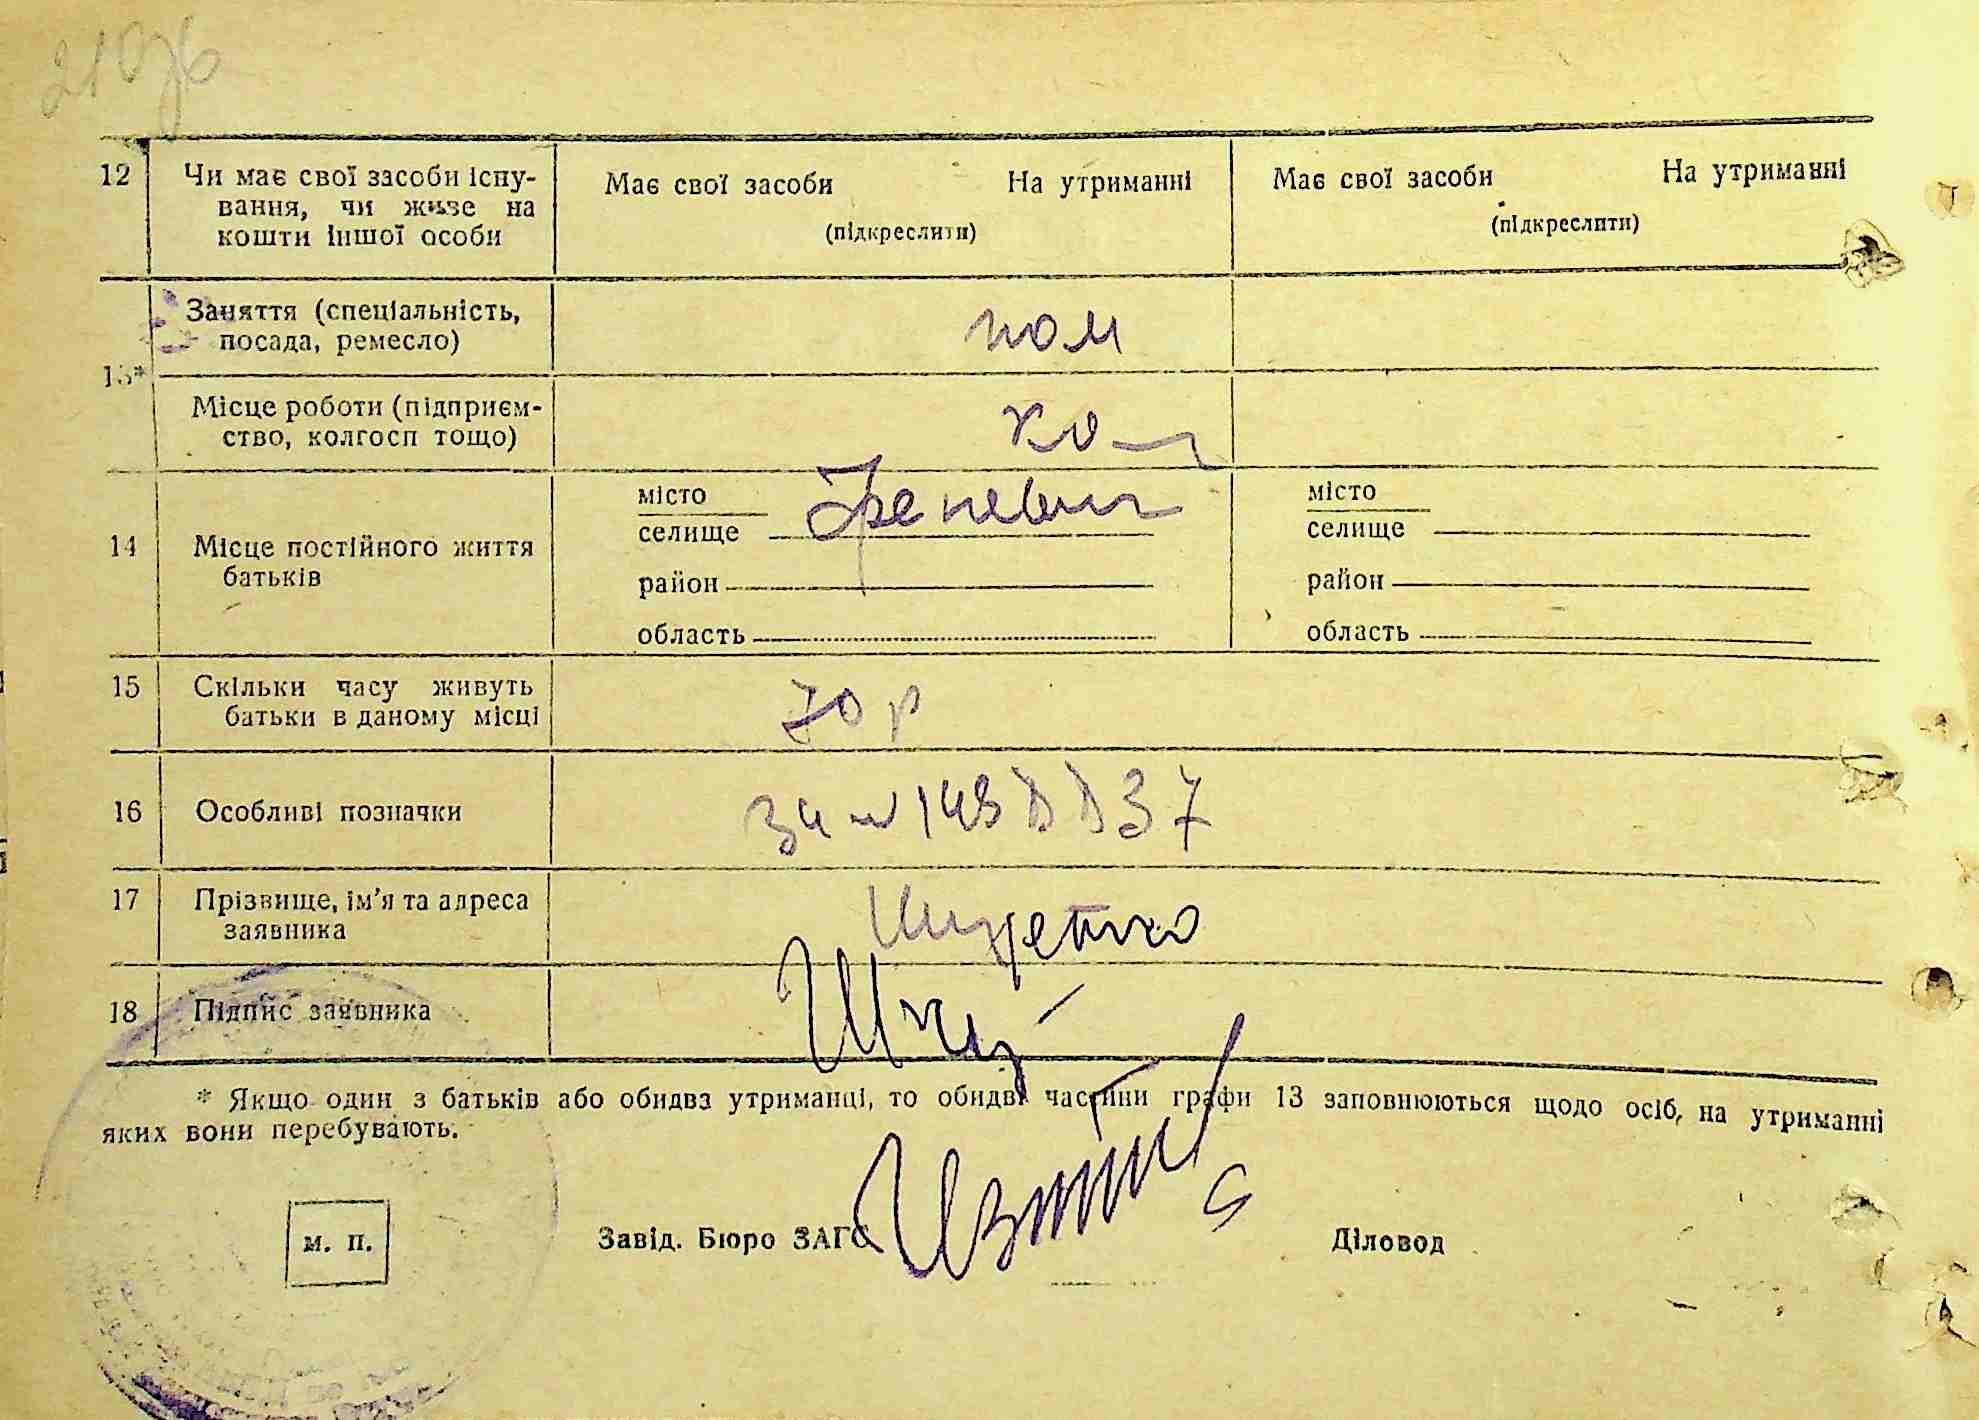 12 Чи має свої засоби існу-
вання, чи живе на
кошти іншої особи
Має свої засоби На утриманні
(підкреслити)
Має свої засоби На утриманні
(підкреслити)
13*
Заняття (спеціальність,
посада, ремесло)
Місце роботи (підприєм-
ство, колгосп тощо)
14 Місце постійного життя
батьків
місто
селище
район
область
місто
селище
район
область
15 Скільки часу живуть
батьки в даному місці
70 р
16 Особливі позначки
17 Прізвище, ім'я та адреса
заявника
18 Підпис заявника
* Якщо один з батьків або обидва утриманці, то обидві частини графи 13 заповнюються щодо осіб, на утриманні
яких вони перебувають.
М. П.
Завід. Бюро ЗАГС
Діловод